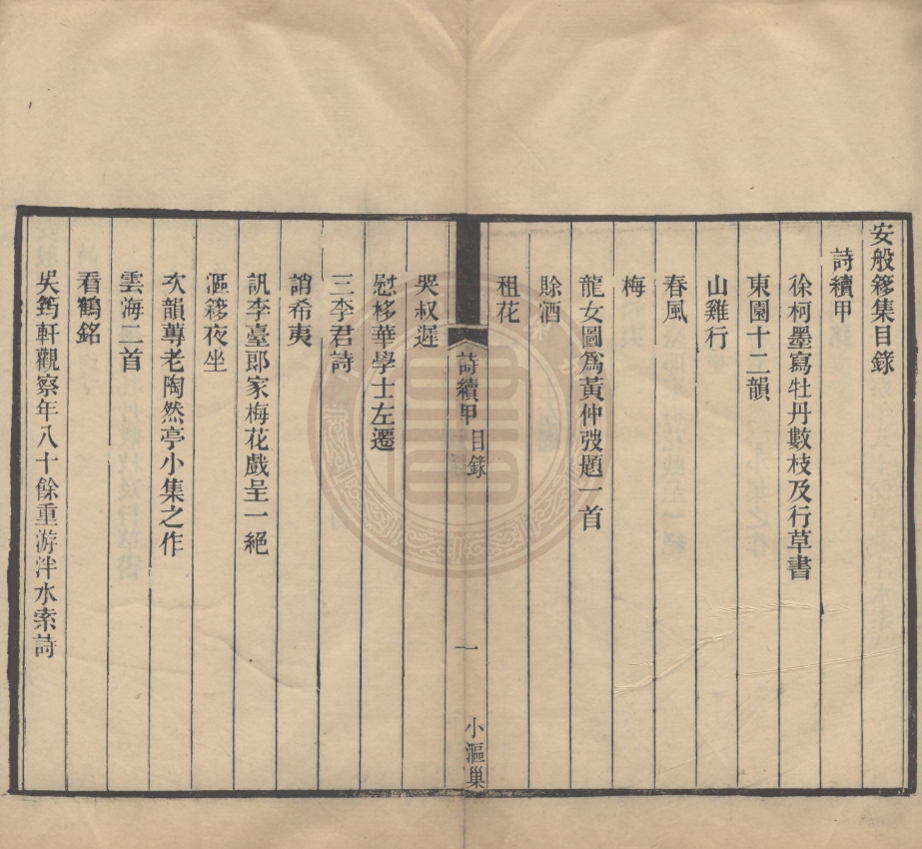 安般簃集目錄
詩續甲
徐柯墨寫牡丹數枝及行草書
東園十二韻
山雞行
春風
梅
龍女圖爲黃仲弢題一首
賖酒
租花
詩續甲 目錄
一
小漚巢
哭叔遲
慰栘華學士左遷
三李君詩
誚希夷
訊李臺郎家梅花戲呈一絕
漚簃夜坐
次韻蓴老陶然亭小集之作
雲海二首
看鶴銘
吳筠軒觀察年八十餘重游泮水索詩